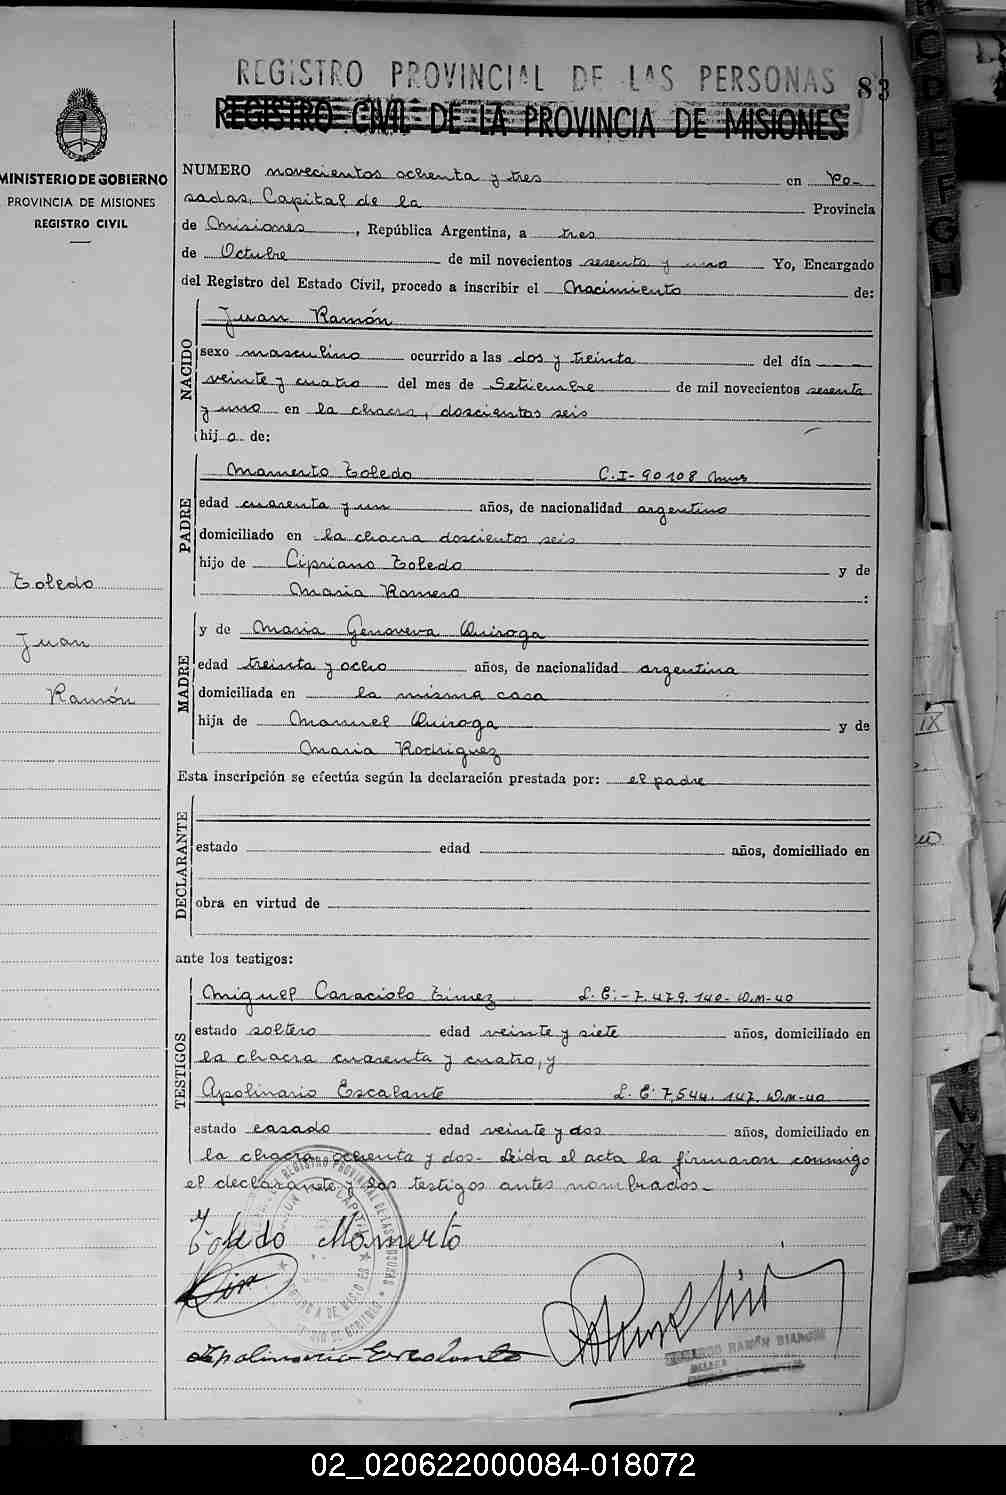 REGISTRO PROVINCIAL DE LAS PERSONAS
83
REGISTRO CIVIL DE LA PROVINCIA DE MISIONES
MINISTERIO DE GOBIERNO
PROVINCIA DE MISIONES
REGISTRO CIVIL
Toledo
Juan
Ramón
NUMERO novecientos ochenta y tres en Po-
sadas, Capital de la Provincia
de Misiones, República Argentina, a tres
de Octubre de mil novecientos sesenta y uno Yo, Encargado
del Registro del Estado Civil, procedo a inscribir el Nacimiento de:
NACIDO
Juan Ramón
sexo masculino ocurrido a las dos y treinta del día
veinte y cuatro del mes de Setiembre de mil novecientos sesenta
y uno en la chacra, doscientos seis
hijo de:
PADRE
Mamerto Toledo C.I- 90108 Mnes
edad cuarenta y un años, de nacionalidad argentino
domiciliado en la chacra doscientos seis
hijo de Cipriano Toledo y de
Maria Romero :
MADRE
y de Maria Genoveva Quiroga
edad treinta y ocho años, de nacionalidad argentina
domiciliada en la misma casa
hija de Manuel Quiroga y de
Maria Rodriguez
Esta inscripción se efectúa según la declaración prestada por: el padre
DECLARANTE
estado edad años, domiciliado en
obra en virtud de
ante los testigos:
TESTIGOS
Miguel Caraciolo L.E:-7.479.140-D.M-40
estado soltero edad veinte y siete años, domiciliado en
la chacra cuarenta y cuatro, y
Apolinario Escalante L.E: 7.544.147. D.M-40
estado casado edad veinte y dos años, domiciliado en
la chacra ochenta y dos- Leida el acta la firmaron conmigo
el declarante y los testigos antes nombrados-
Toledo Mamerto
Apolinario Escalante
RAMÓN BIANCHI
IX
02_020622000084-018072